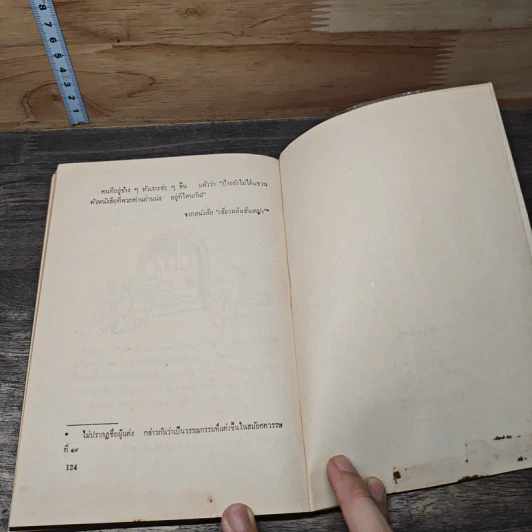 คนที่อยู่ข้าง ๆ หัวเราะฮ่ะ ๆ ขึ้น แล้วว่า "ป้ายยังไม่ได้แขวน
ตัวหนังสือที่พวกท่านอ่านน่ะ อยู่ที่ไหนกัน!"
จากหนังสือ "เซี่ยวหลินชินหย่า"*
* ไม่ปรากฏชื่อผู้แต่ง กล่าวกันว่าเป็นวรรณกรรมที่แต่งขึ้นในสมัยศตวรรษ
ที่ ๑๙
124
8 7 6 5 4 3 2 1